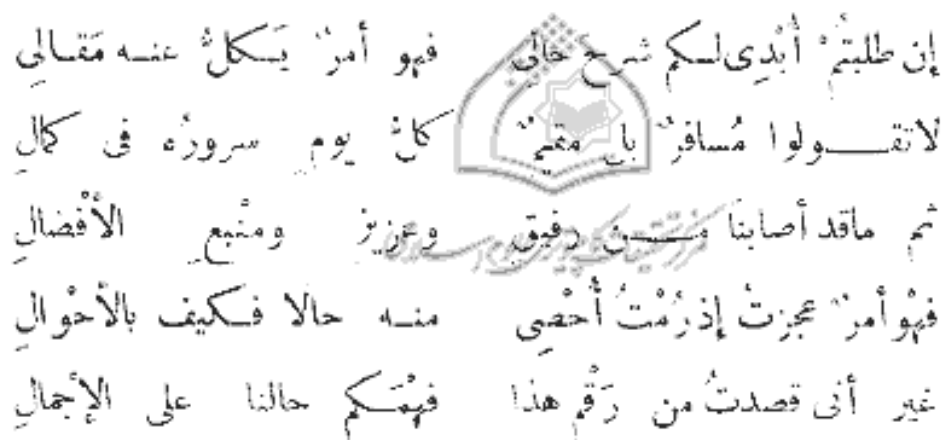 إن طلبتمْ أُبْدِى لـكم شرحَ حالى فهو أمرٌ يَـكلُّ عنـه مَقـالى
لاتقـــولوا مُسافرٌ بل مقيمٌ كلَّ يوم سرورُه فى كمالِ
ثم ماقد أصابنا مـــن رفيقٍ وعزيزٍ ومنْبع الأفْضالِ
فهْو أمرٌ عجزتُ إذ رُمْتُ أُحْصِى منـه حالا فـكيف بالأحْوالِ
غير أنى قصدتُ من رَقْمِ هذا فهْمَـكم حالنا على الإجمالِ